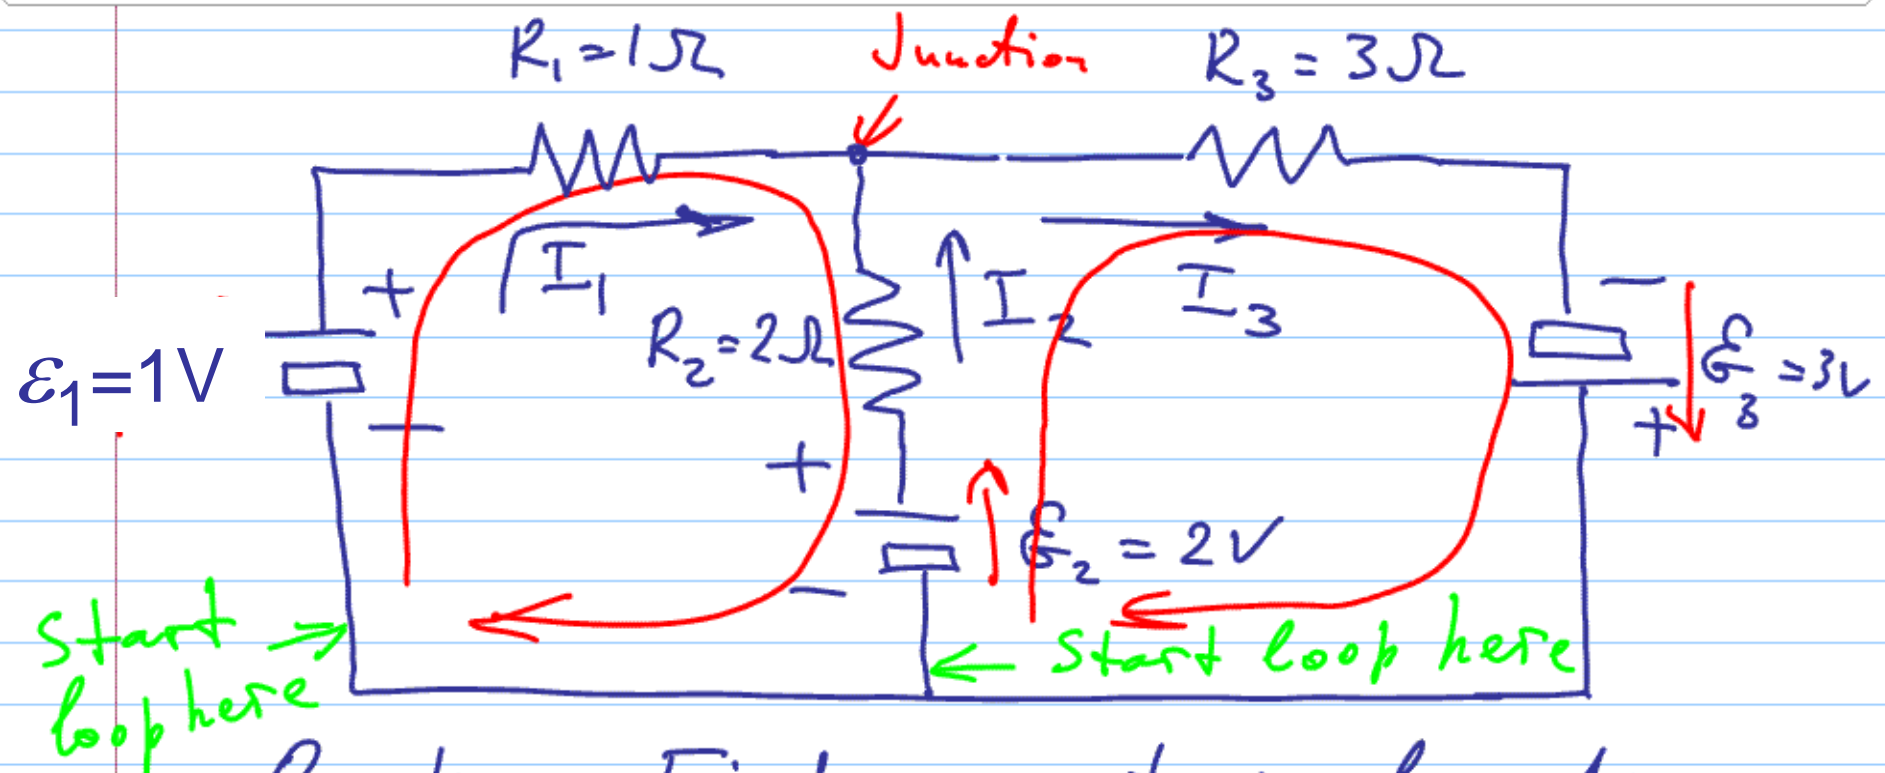 R₁ = 1Ω
Junction
R₃ = 3Ω
+
I₁
I₂
I₃
−
R₂ = 2Ω
ℰ₁=1V
ℰ₃ = 3V
−
+
+
ℰ₂ = 2V
−
Start
loop here
Start loop here